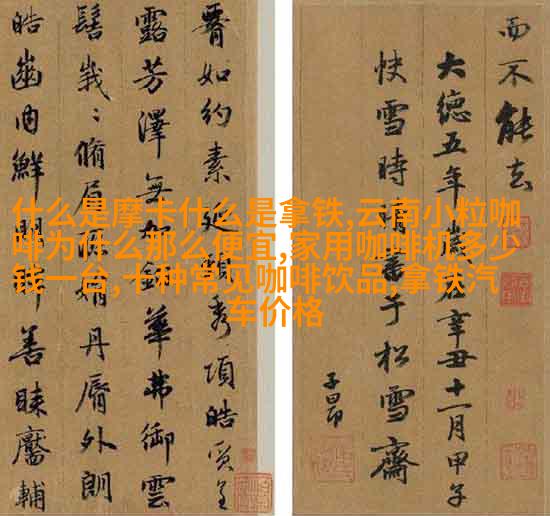 什么是摩卡什么是拿铁,云南小粒咖
啡为什么那么便宜,家用咖啡机多少
钱一台,十种常见咖啡饮品,拿铁汽
车价格
如約素延頸秀項皓質呈
露芳澤無加鉛華弗御雲
髻峩〻脩眉聯娟丹脣外朗
皓齒内鮮明眸善睞靨輔
而不能去
大德五年歲在辛丑十一月甲子
快雪時晴書于松雪齋
子昂